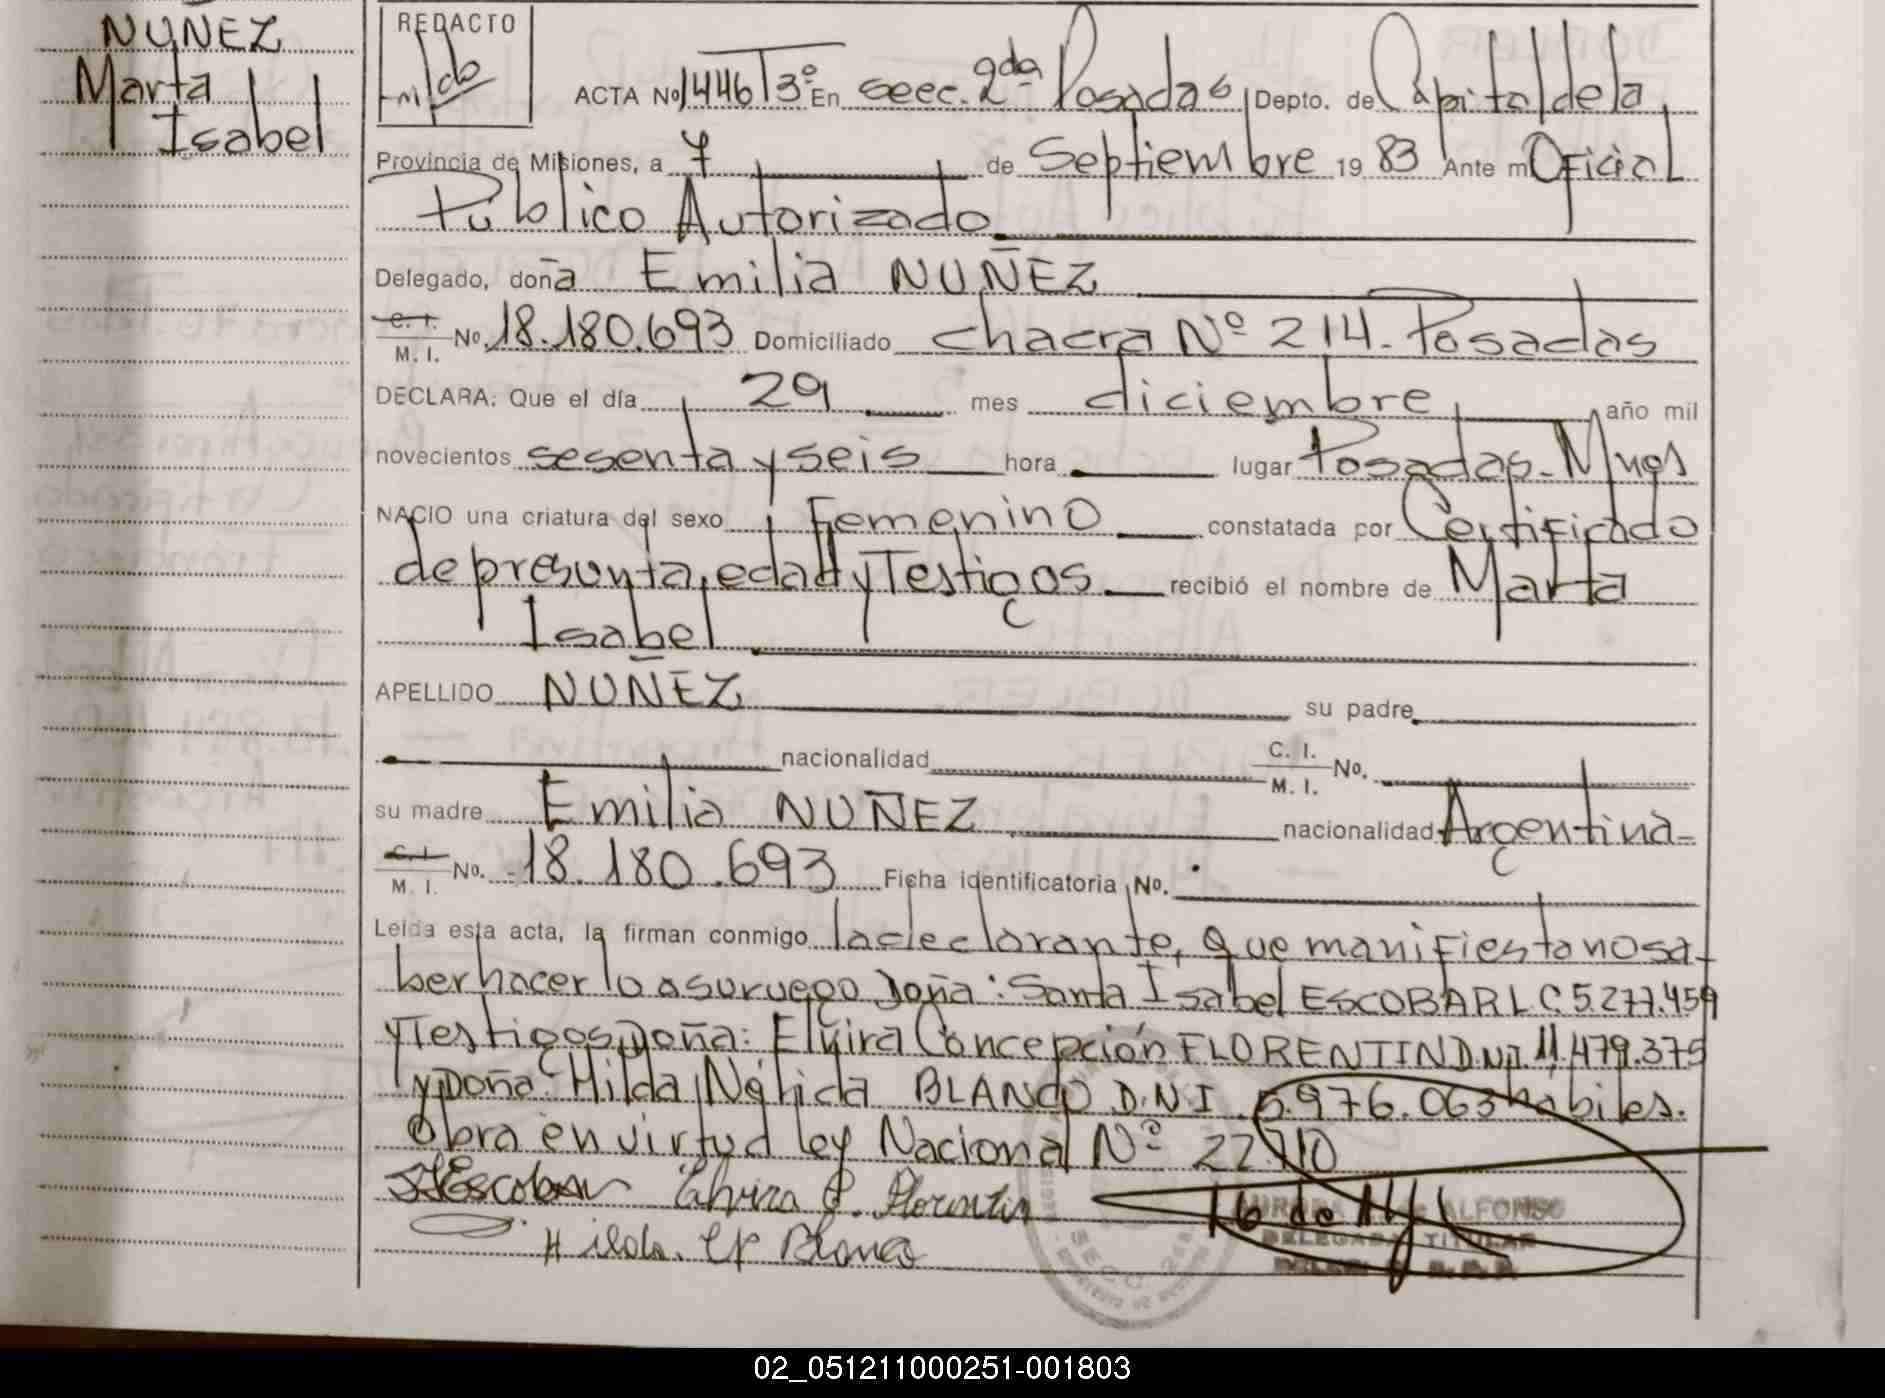 NUÑEZ
Marta
Isabel
REDACTO
ACTA No 1446 T3º En secc. 2da Posadas Depto. de Capital de la
Provincia de Misiones, a 7 de Septiembre 1983 Ante mi Oficial
Público Autorizado.
Delegado, doña Emilia NUÑEZ
C. I. / M. I. No. 18.180.693 Domiciliado chacra Nº 214. Posadas
DECLARA: Que el día 29 mes diciembre año mil
novecientos sesenta y seis hora lugar Posadas - Mnes
NACIO una criatura del sexo Femenino constatada por Certificado
de presunta edad y Testigos recibió el nombre de Marta
Isabel
APELLIDO NUÑEZ su padre
nacionalidad C. I. / M. I. No.
su madre Emilia NUÑEZ nacionalidad Argentina-
C. I. / M. I. No. 18.180.693 Ficha identificatoria No.
Leída esta acta, la firman conmigo la declarante, que manifiesta no sa-
ber hacerlo a su ruego Doña: Santa Isabel ESCOBAR L C 5.277.459
y Testigos Doña: Elvira Concepción FLORENTIN D.N.I 11.479.375
y Doña: Hilda Nélida BLANCO D.N.I 5.976.063 habiles.
Obra en virtud ley Nacional Nº 22.710
Escobar Elvira C. Florentin
Hilda Blanco
ALFONSO
DELEGADA TITULAR
SECC 2da
02_051211000251-001803